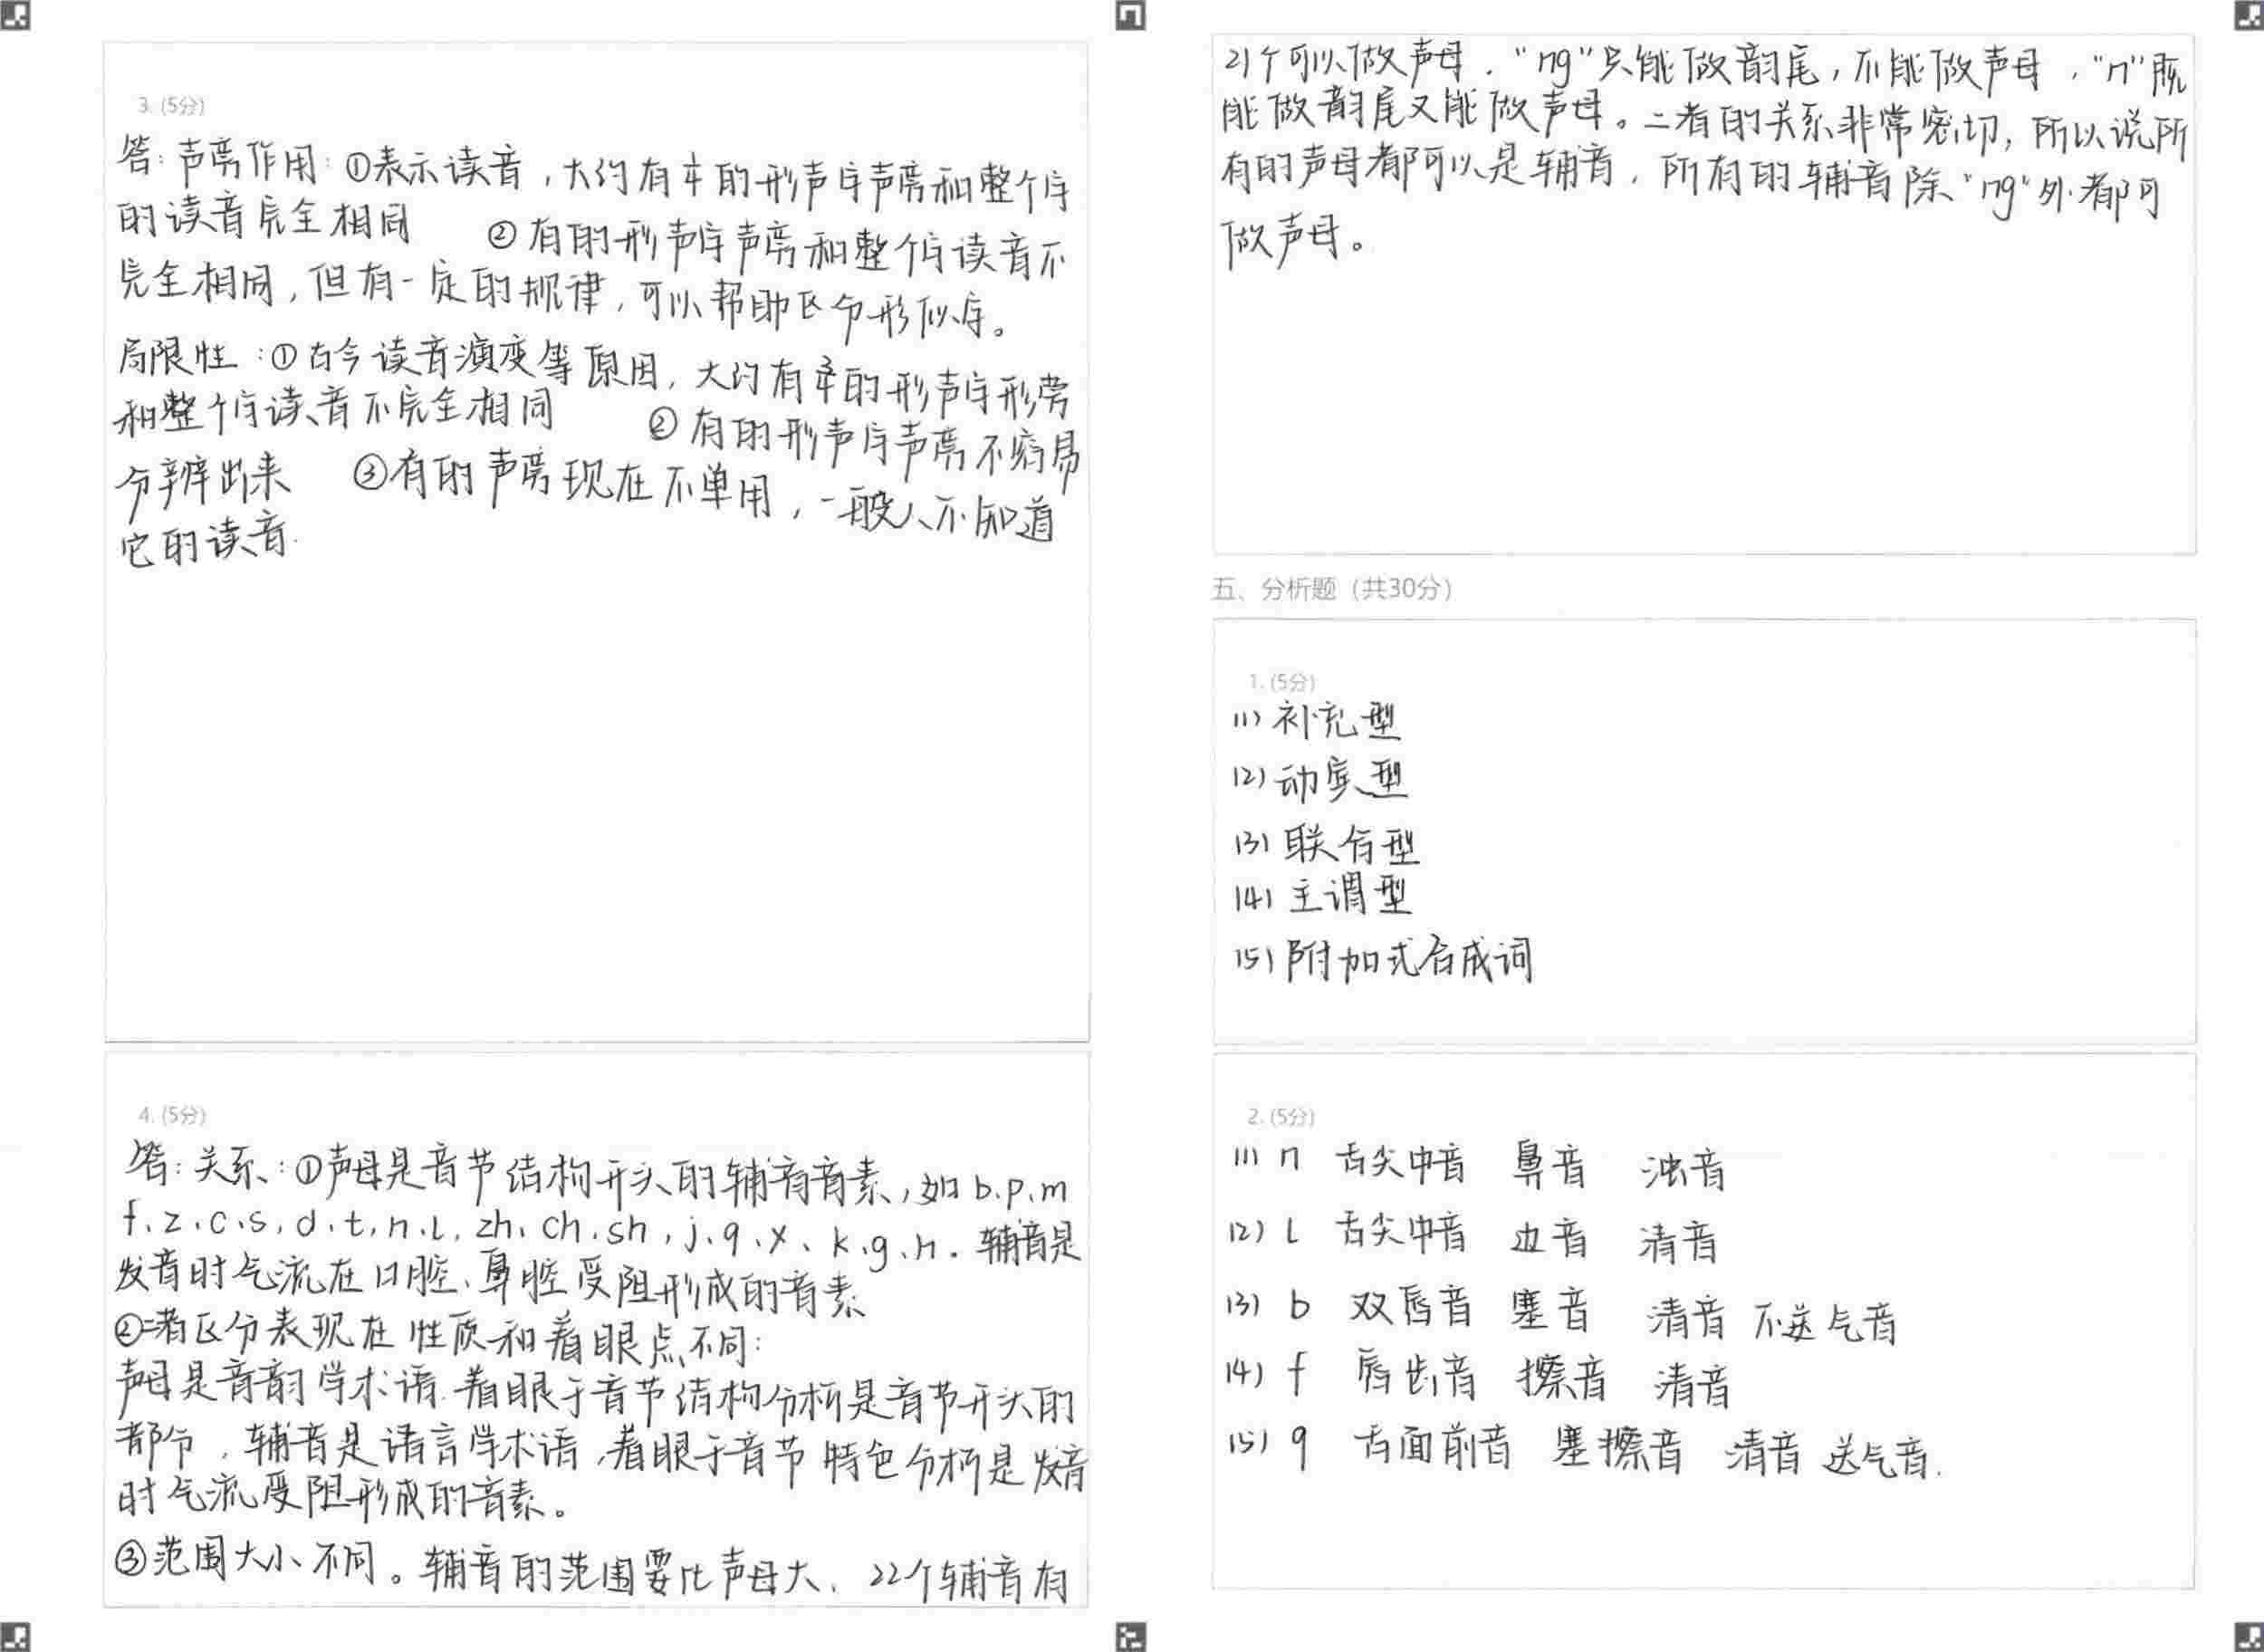 3. (5分)
答:声旁作用:①表示读音,大约有的形声字声旁和整个字
的读音完全相同 ②有的形声字声旁和整个字读音不
完全相同,但有一定的规律,可以帮助区分形似字。
局限性:①古今读音演变等原因,大约有的形声字形旁
和整个字读音不完全相同 ②有的形声字声旁不容易
分辨出来 ③有的声旁现在不单用,一般人不知道
它的读音.
4. (5分)
答:关系:①声母是音节结构开头的辅音音素,如b.p.m
f、z、c、s、d、t、n、l、zh、ch、sh、j、q、x、k、g、h。辅音是
发音时气流在口腔、鼻腔受阻形成的音素
②二者区分表现在性质和着眼点不同:
声母是音韵学术语.着眼于音节结构分析是音节开头的
部分,辅音是语言学术语,着眼于音节特色分析是发音
时气流受阻形成的音素。
③范围大小不同。辅音的范围要比声母大、22个辅音有
21个可以做声母,“ng”只能做韵尾,不能做声母,“n”既
能做韵尾又能做声母。二者的关系非常密切,所以说所
有的声母都可以是辅音,所有的辅音除“ng”外都可
做声母。
五、分析题(共30分)
1. (5分)
(1) 补充型
(2) 动宾型
(3) 联合型
(4) 主谓型
(5) 附加式合成词
2. (5分)
(1) n 舌尖中音 鼻音 浊音
(2) l 舌尖中音 边音 清音
(3) b 双唇音 塞音 清音 不送气音
(4) f 唇齿音 擦音 清音
(5) q 舌面前音 塞擦音 清音 送气音.